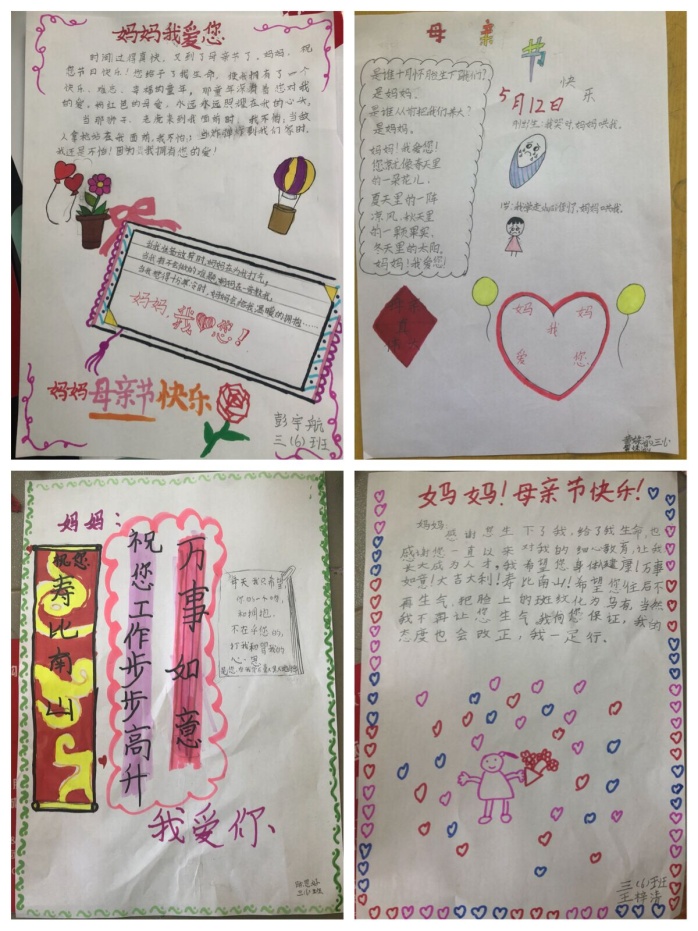 妈妈我爱您
时间过得真快，又到了母亲节了，妈妈，祝
您节日快乐！您给予了我生命，使我拥有了一个
快乐、难忘、幸福的童年，那童年深藏着您对我
的爱，粉红色的母爱，永远永远照耀在我的心头。
当那狮子、老虎来到我面前时，我不怕；当敌
人拿枪站在我面前，我不怕；当炸弹掉到我们家时，
我还是不怕！因为：我拥有您的爱！
当我准备放弃时，妈妈在为我打气，
当我有不会做的难题，妈妈在一旁教我，
当我觉得十分寒冷时，妈妈会给我温暖的拥抱……
妈妈，我您！
妈妈母亲节快乐
彭宇航
三(6)班
母亲节
快乐
5月12日
是谁十月怀胎生下我们？
是妈妈。
是谁从小把我们养大？
是妈妈。
妈妈！我爱您！
您就像春天里
的一朵花儿，
夏天里的一阵
凉风，秋天里
的一颗果实，
冬天里的太阳。
妈妈！我爱您！
刚出生：我哭对，妈妈哄我。
母亲
节
快乐
妈 妈
我
爱 您
妈妈：
祝您
寿比南山
祝您工作步步高升
万事如意
今天我只希望
和拥抱。
不在乎您的，
我爱你、
三(6)班
妈妈！母亲节快乐！
妈妈：
感谢您生下了我，给了我生命，也
感谢您一直以来对我的细心教育，让我
长大成为人才，我希望您身体健康！万事
如意！大吉大利！寿比南山！希望您往后不
再生气，把脸上的斑纹化为乌有，当然
我不再让您生气，我向您保证，我的
态度也会改正，我一定行。
三(6)班
王梓清